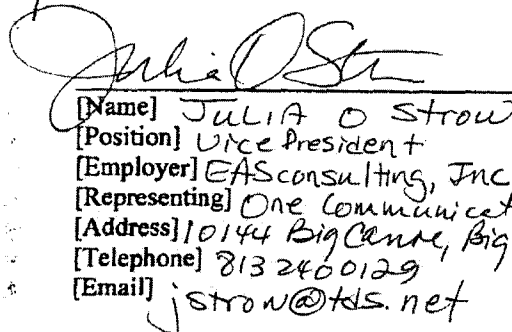 Julia O Strow
[Name] JULIA O Strow
[Position] Vice President
[Employer] EASconsulting, Inc
[Representing] One Communicat
[Address] 10144 Big Canoe, Big
[Telephone] 813 240 0129
[Email] jstrow@tds.net